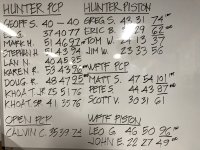 HUNTER PCP
GEOFF S. 40 - 40
G. 37 40 77
MARK H. 51 46 97
STEPHEN H. 51 43 94
LAN N. 40 45 85
KAREN R. 53 43 96
DOUG R. 48 47 95
KHOA T. JR 25 51 76
KHOA T. SR 41 35 76
OPEN PCP
CALVIN C. 35 39 74
HUNTER PISTON
GREG S. 43 31 74
ERIC B. 29 62
TOM W. 24 13 37
JIM W. 23 33 56
WFTF PCP
MATT S. 47 54 101
PETE S. 44 43 87
SCOTT V. 30 31 61
WFTF PISTON
LEO G. 46 50 96
JOHN E. 22 27 49